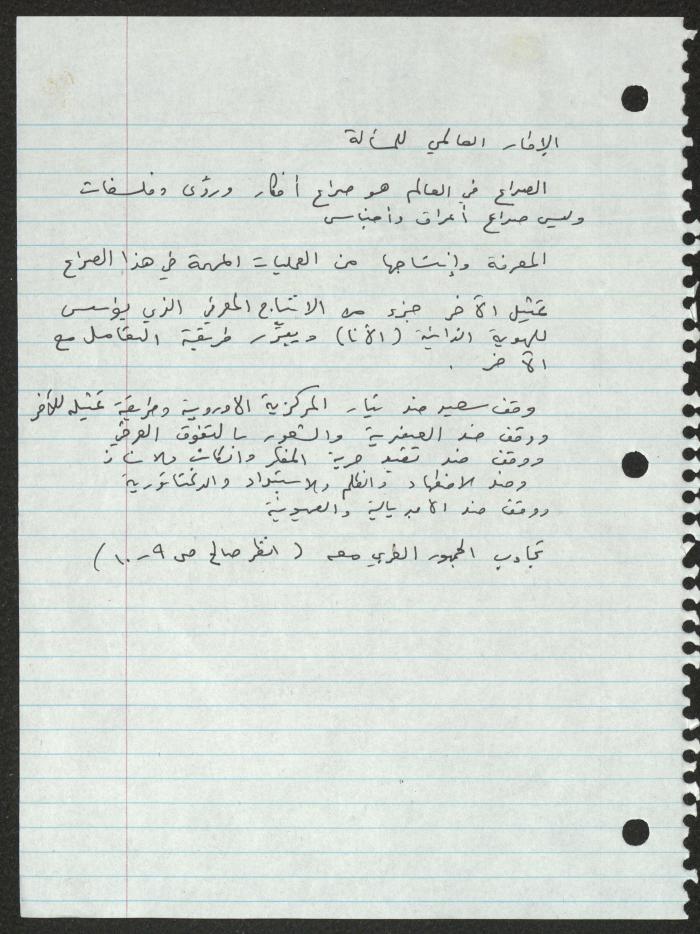 الإطار العالمي للمسألة
الصراع في العالم هو صراع أفكار ورؤى وفلسفات
وليس صراع أعراق وأجناس
المعرفة وإنتاجها من العمليات المهمة في هذا الصراع
تمثيل الآخر جزء من الانتاج المعرفي الذي يؤسس
للهوية الذاتية (الأنا) ويبرّر طريقة التعامل مع
الآخر .
وقف سعيد ضد تيار المركزية الاوروبية وطريقة تمثيله للآخر
ووقف ضد العنصرية والشعور بالتفوق العرقي
ووقف ضد تقييد حرية المفكر والكاتب
وضد الاضطهاد والظلم والاستبداد والدكتاتورية
ووقف ضد الامبريالية والصهيونية
تجاوب الجمهور الغربي معه ( انظر صالح ص ٩-١٠ )